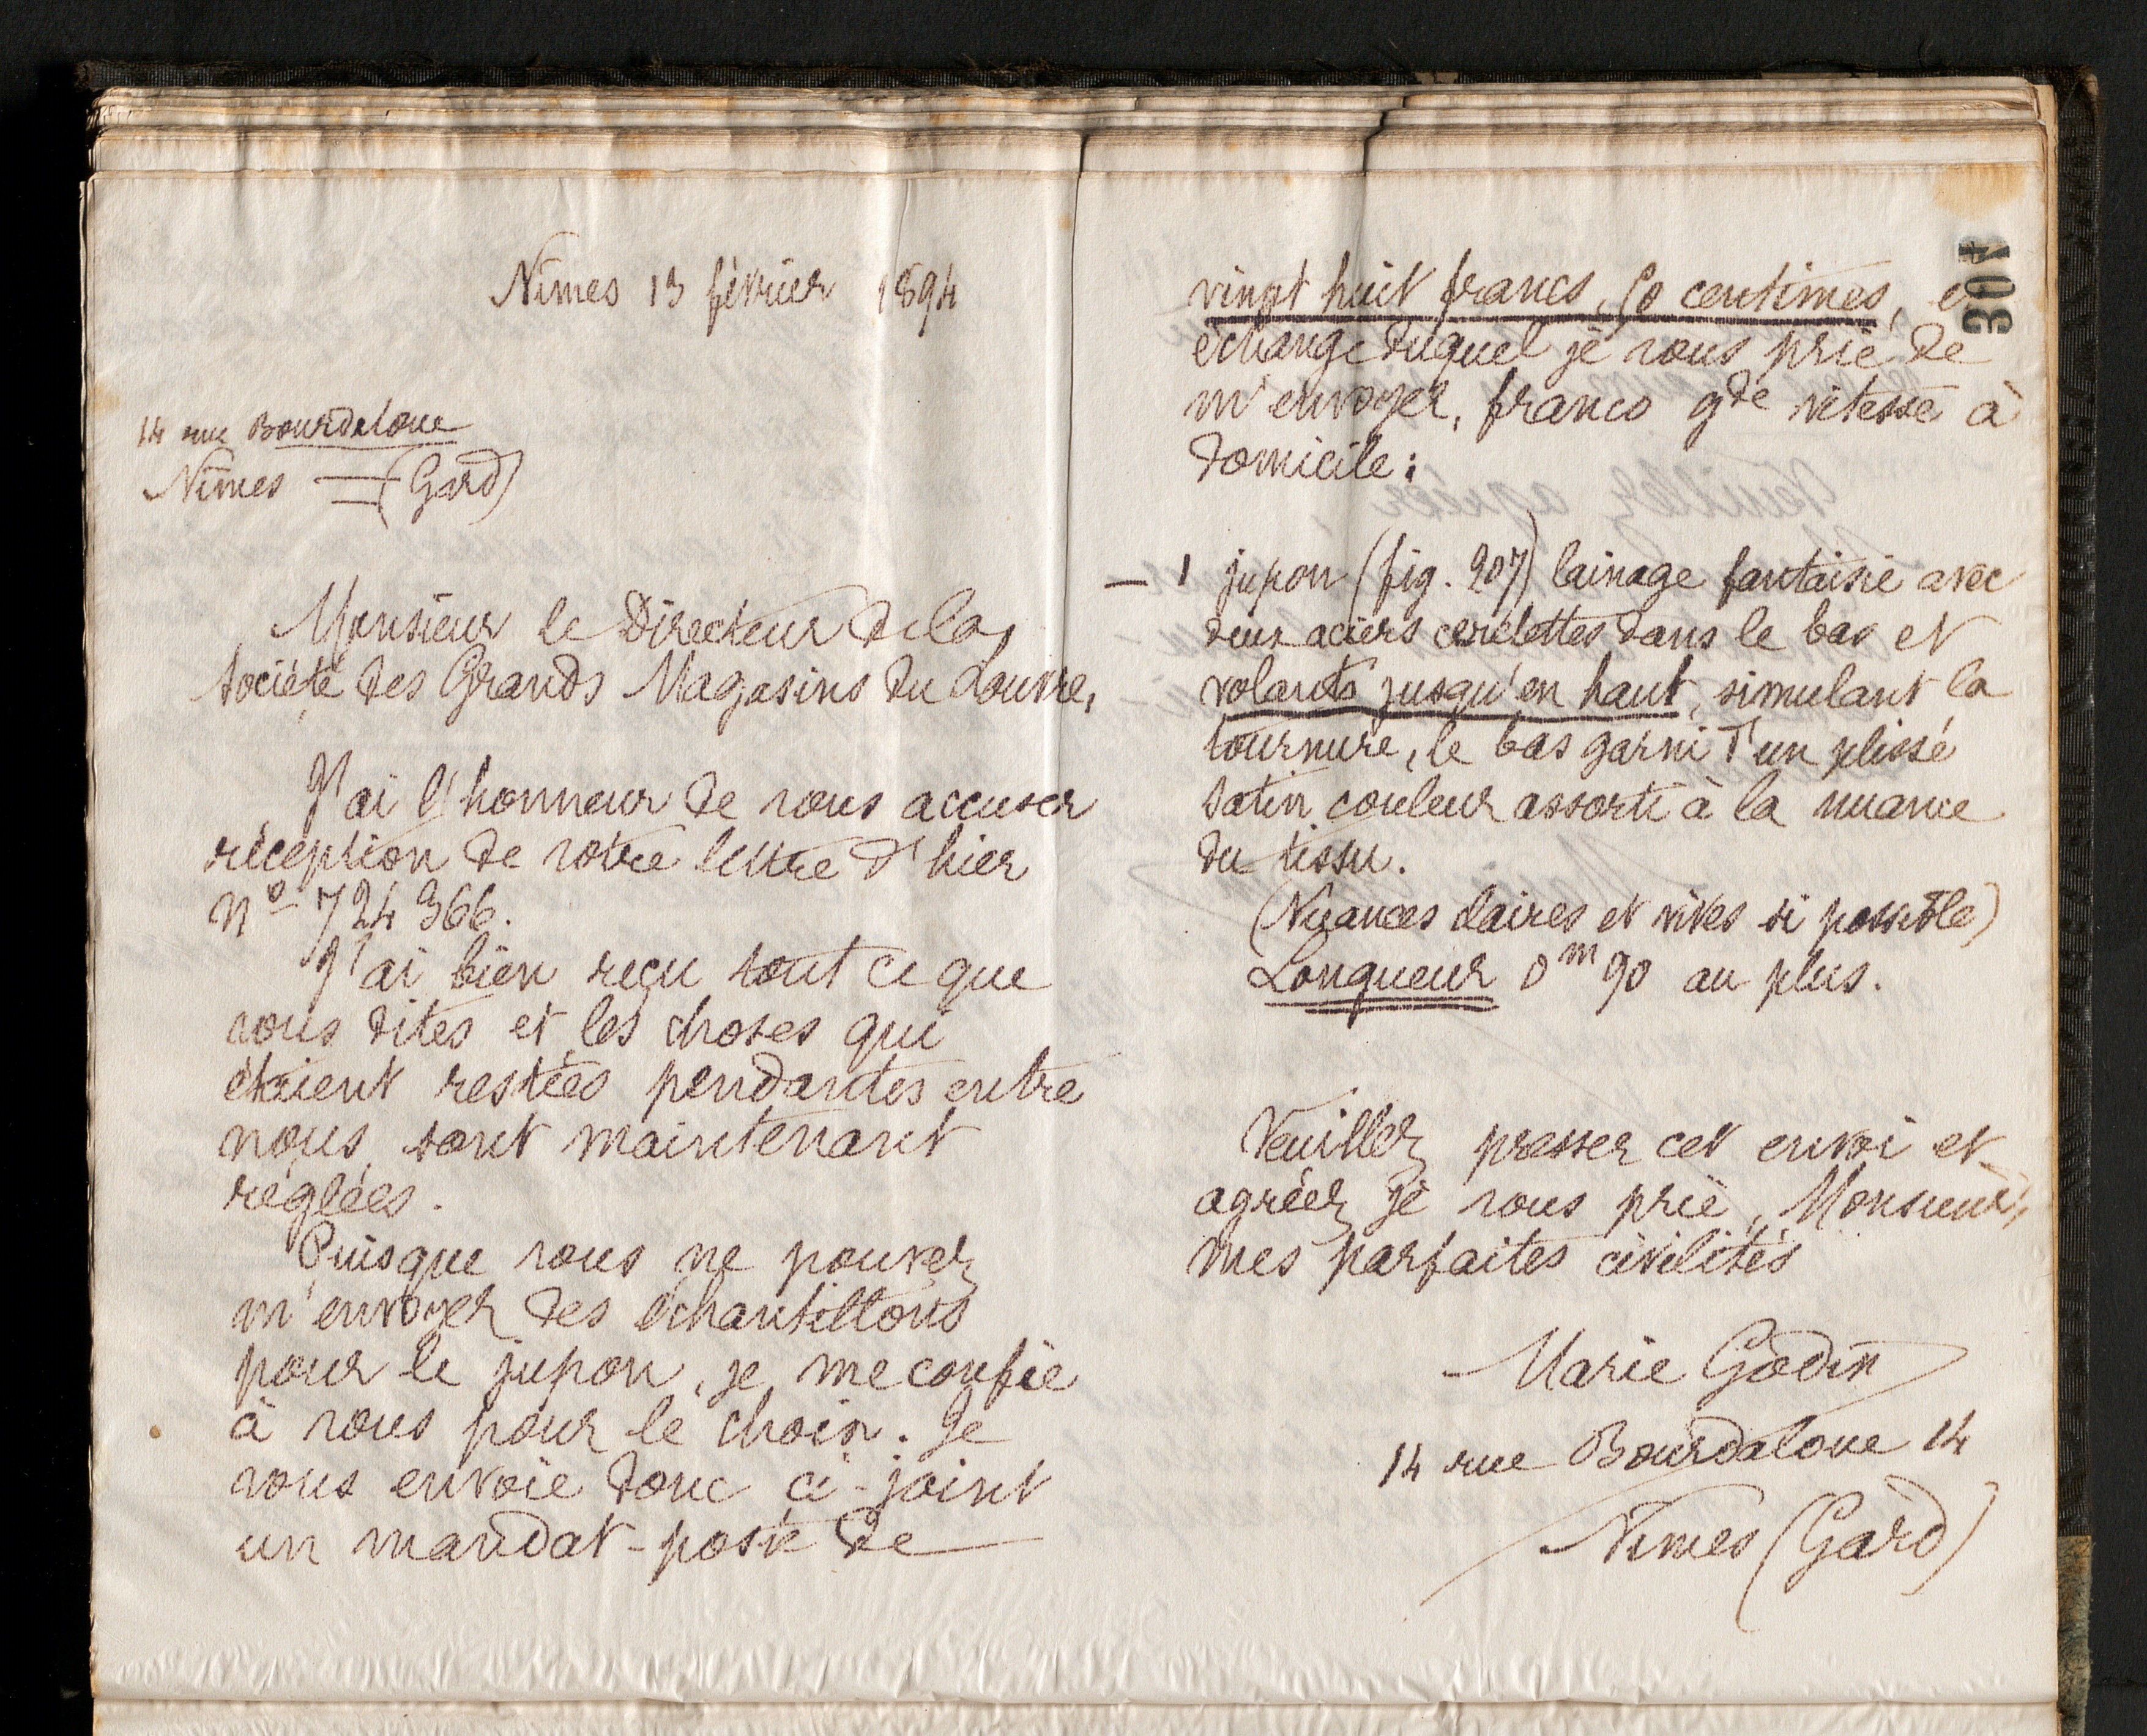 Nîmes 13 février 1894
14 rue Bourdaloue
Nîmes — (Gard)
Monsieur le Directeur de la
Société des Grands Magasins du Louvre,
J'ai l'honneur de vous accuser
réception de votre lettre d'hier
nº 724 366.
J'ai bien reçu tout ce que
vous dites et les choses qui
étaient restées pendantes entre
nous, sont maintenant
réglées.
Puisque vous ne pouvez
m'envoyer des échantillons
pour le jupon, je me confie
à vous pour le choix. Je
vous envoie donc ci-joint
un mandat-poste de
301
vingt huit francs, centimes,
échange duquel je vous prie de
m'envoyer, franco gde vitesse à
domicile :
— 1 jupon (fig. 207) lainage fantaisie avec
deux aciers cerclettes dans le bas et
volants jusqu'en haut, simulant la
tournure, le bas garni d'un plissé
satin couleur assorti à la nuance
du tissu.
(Nuances claires et vives si possible)
Longueur 0m90 au plus.
Veuillez presser cet envoi et
agréer, je vous prie, Monsieur,
mes parfaites civilités
Marie Godin
14 rue Bourdaloue 14
Nîmes (Gard)